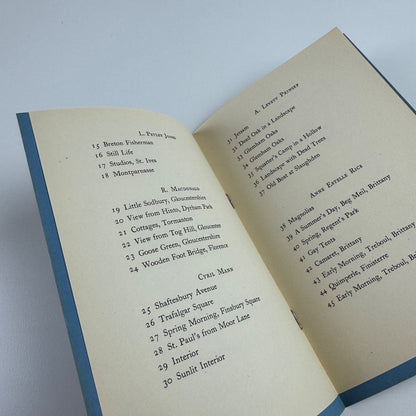 L. Petley Jones
15 Breton Fisherman
16 Still Life
17 Studios, St. Ives
18 Montparnasse
R. Macdonald
19 Little Sodbury, Gloucestershire
20 View from Hinto, Dyrham Park
21 Cottages, Tormaston
22 View from Tog Hill, Gloucestershire
23 Goose Green, Gloucestershire
24 Wooden Foot Bridge, Florence
Cyril Mann
25 Shaftesbury Avenue
26 Trafalgar Square
27 Spring Morning, Finsbury Square
28 St. Paul's from Moor Lane
29 Interior
30 Sunlit Interior
A. Lovett
31 Jetsam
32 Dead Oak in a Landscape
33 Glenham Oaks
34 Glenham Oaks
35 Squatter's Camp in a Hollow
36 Landscape with Dead Trees
37 Old Boat at Slaughden
Anne Estelle Rice
38 Magnolias
39 A Summer's Day, Beg Meil, Brittany
40 Spring, Regent's Park
41 Gay Tents
42 Camaret, Brittany
43 Early Morning, Treboul, Brittany
44 Quimperle, Finisterre
45 Early Morning, Treboul,